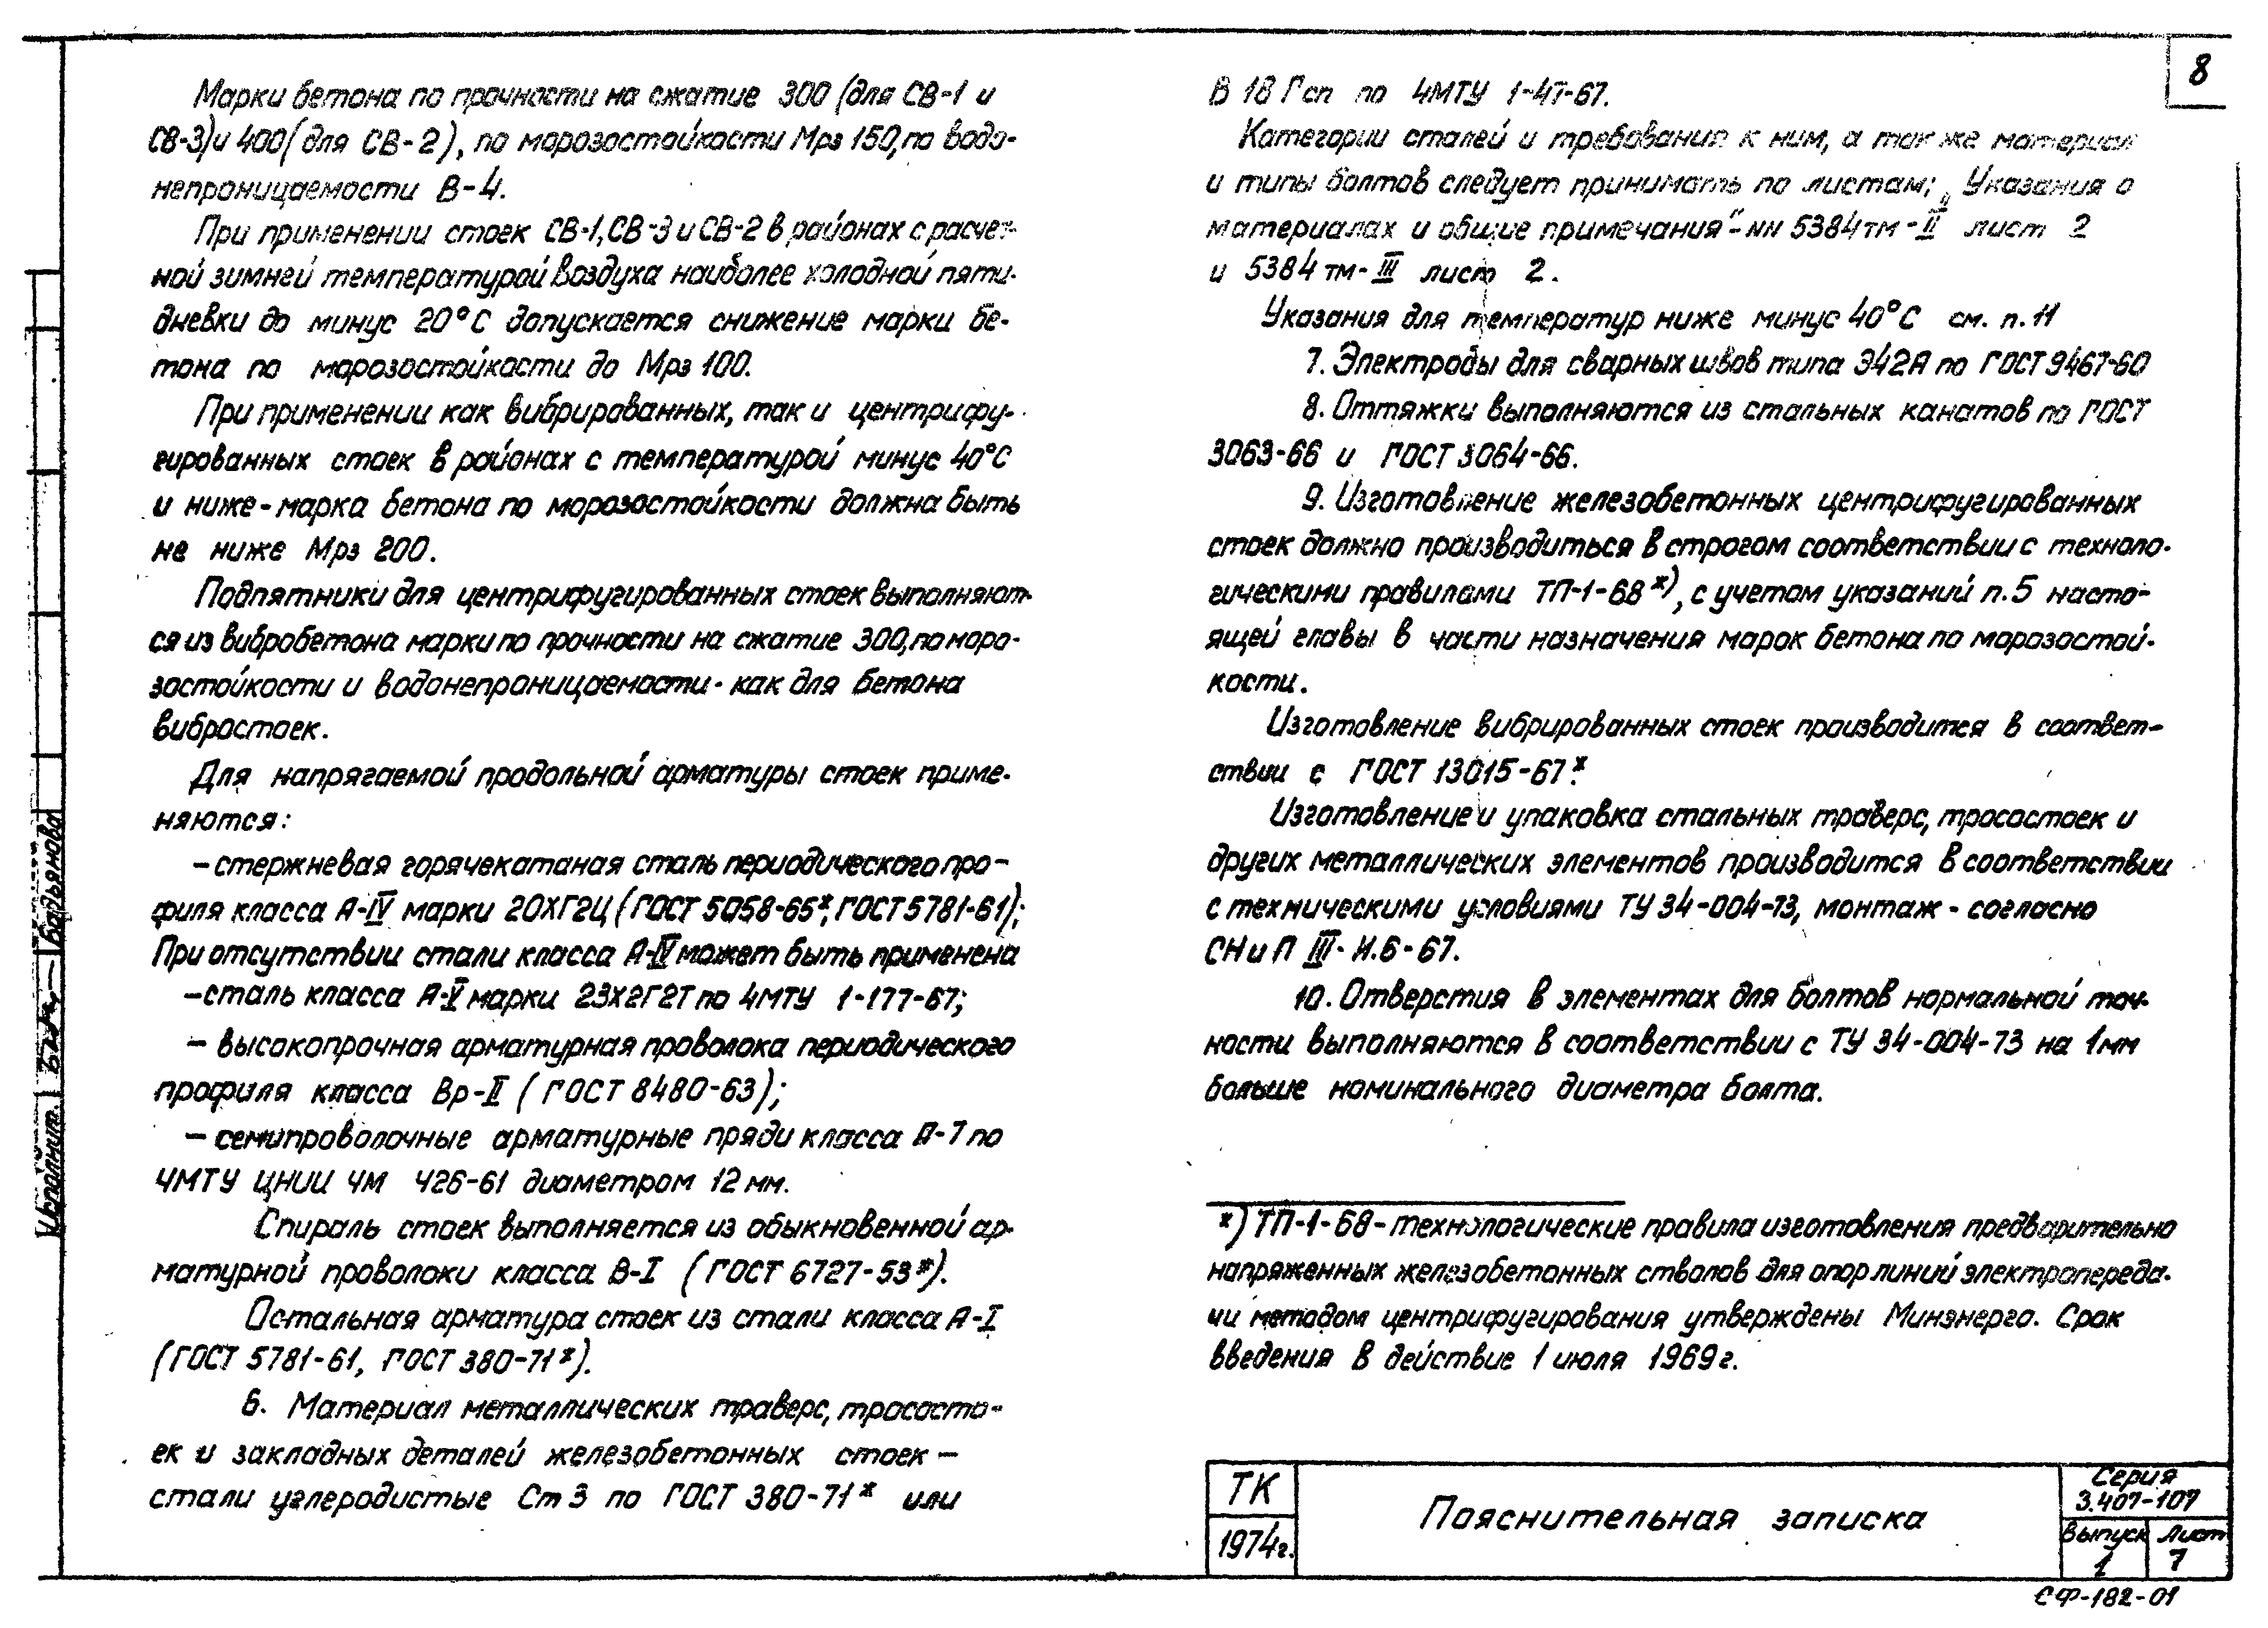 8
Марки бетона по прочности на сжатие 300 (для СВ-1 и
СВ-3) и 400 (для СВ-2), по морозостойкости Мрз 150, по водо-
непроницаемости В-4.
При применении стоек СВ-1, СВ-3 и СВ-2 в районах с расчет-
ной зимней температурой воздуха наиболее холодной пяти-
дневки до минус 20°С допускается снижение марки бе-
тона по морозостойкости до Мрз 100.
При применении как вибрированных, так и центрифу-
гированных стоек в районах с температурой минус 40°С
и ниже - марка бетона по морозостойкости должна быть
не ниже Мрз 200.
Подпятники для центрифугированных стоек выполняют-
ся из вибробетона марки по прочности на сжатие 300, по моро-
зостойкости и водонепроницаемости - как для бетона
вибростоек.
Для напрягаемой продольной арматуры стоек приме-
няются:
- стержневая горячекатаная сталь периодического про-
филя класса А-IV марки 20ХГ2Ц (ГОСТ 5058-65*, ГОСТ 5781-61);
При отсутствии стали класса А-IV может быть применена
- сталь класса А-V марки 23Х2Г2Т по ЧМТУ 1-177-67;
- высокопрочная арматурная проволока периодического
профиля класса Вр-II (ГОСТ 8480-63);
- семипроволочные арматурные пряди класса П-7 по
ЧМТУ ЦНИИ ЧМ 426-61 диаметром 12 мм.
Спираль стоек выполняется из обыкновенной ар-
матурной проволоки класса В-I (ГОСТ 6727-53*).
Остальная арматура стоек из стали класса А-I
(ГОСТ 5781-61, ГОСТ 380-71*).
6. Материал металлических траверс, трососто-
ек и закладных деталей железобетонных стоек -
стали углеродистые Ст 3 по ГОСТ 380-71* или
В 18 Гсп по ЧМТУ 1-47-67.
Категории сталей и требования к ним, а так же материал
и типы болтов следует принимать по листам; „Указания о
материалах и общие примечания" - НН 5384тм-II лист 2
и 5384тм-III лист 2.
Указания для температур ниже минус 40°С см. п.11
7. Электроды для сварных швов типа Э42А по ГОСТ 9467-60
8. Оттяжки выполняются из стальных канатов по ГОСТ
3063-66 и ГОСТ 3064-66.
9. Изготовление железобетонных центрифугированных
стоек должно производиться в строгом соответствии с техноло-
гическими правилами ТП-1-68*), с учетом указаний п.5 насто-
ящей главы в части назначения марок бетона по морозостой-
кости.
Изготовление вибрированных стоек производится в соответ-
ствии с ГОСТ 13015-67*.
Изготовление и упаковка стальных траверс, тросостоек и
других металлических элементов производится в соответствии
с техническими условиями ТУ 34-004-73, монтаж - согласно
СНиП III-И.6-67.
10. Отверстия в элементах для болтов нормальной точ-
ности выполняются в соответствии с ТУ 34-004-73 на 1мм
больше номинального диаметра болта.
*) ТП-1-68 - технологические правила изготовления предварительно
напряженных железобетонных стволов для опор линий электропереда-
чи методом центрифугирования утверждены Минэнерго. Срок
введения в действие 1 июля 1969г.
ТК
1974г.
Пояснительная записка
Серия
3.407-107
Выпуск
1
Лист
7
СФ-182-01
Исполнит.